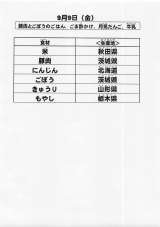 9月9日（金）
豚肉とごぼうのごはん、ごま酢かけ、月見だんご、牛乳
食材 ＜生産地＞
米 秋田県
豚肉 茨城県
にんじん 北海道
ごぼう 茨城県
きゅうり 山形県
もやし 栃木県